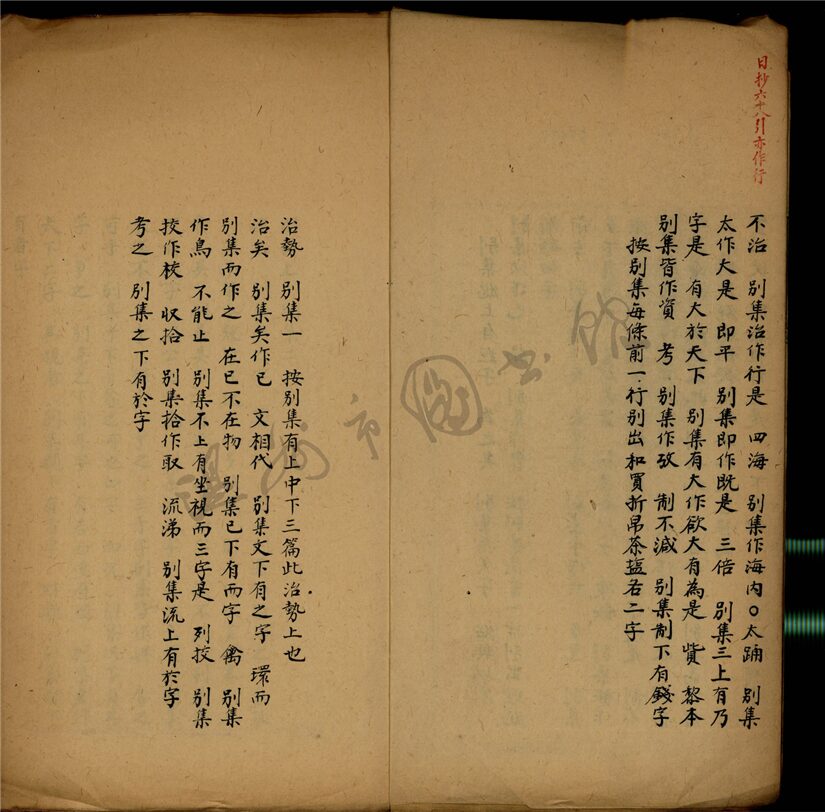 日抄六十八引亦作行
不治　別集治作行是　四海　別集作海内〇太踊　別集
太作大是　即平　別集即作既是　三倍　別集三上有乃
字是　有大於天下　別集有大作欲大有為是　貲　黎本
別集皆作資　考　別集作攷　制不減　別集制下有錢字
按別集每條前一行別出和買折帛茶塩若二字
治勢　別集一　按別集有上中下三篇此治勢上也
治矣　別集矣作已　文相代　別集文下有之字　環而
別集而作之　在已不在物　別集已下有而字　禽　別集
作鳥　不能止　別集不上有坐視而三字是　列挍　別集
挍作校　収拾　別集拾作取　流涕　別集流上有於字
考之　別集之下有於字
市圖书館